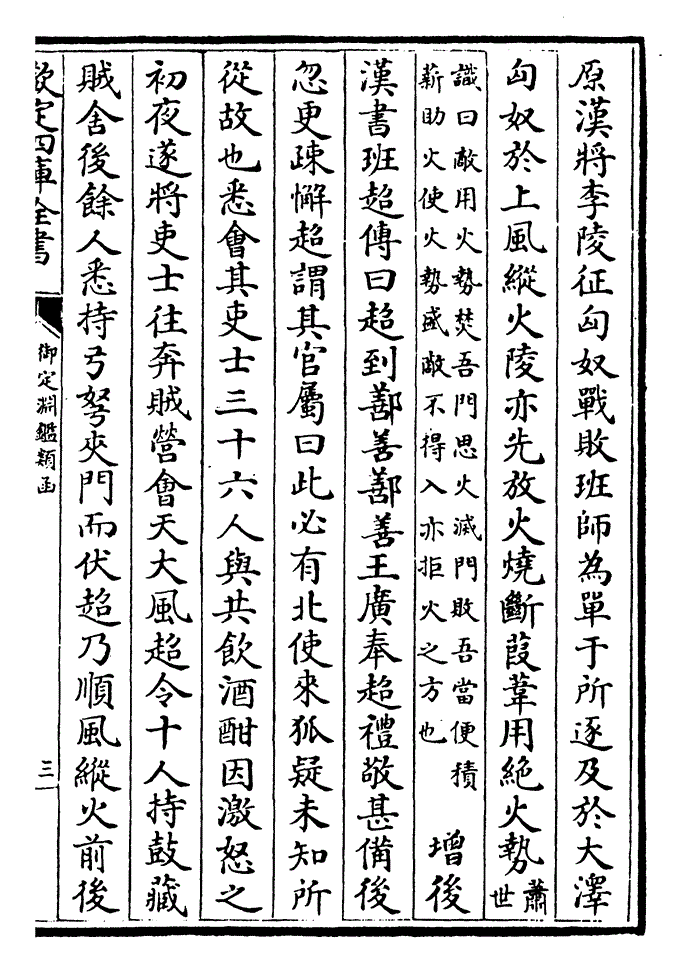 原漢將李陵征匈奴戰敗班師為單于所逐及於大澤
匈奴於上風縱火陵亦先放火燒斷葭葦用絶火勢蕭世
識曰敵用火勢焚吾門思火滅門敗吾當便積
薪助火使火勢盛敵不得入亦拒火之方也
增後
漢書班超傳曰超到鄯善鄯善王廣奉超禮敬甚備後
忽更疎懈超謂其官屬曰此必有北使來狐疑未知所
從故也悉會其吏士三十六人與共飲酒酣因激怒之
初夜遂將吏士往奔賊營會天大風超令十人持鼓藏
賊舍後餘人悉持弓弩夾門而伏超乃順風縱火前後
欽定四庫全書
御定淵鑑類函
三